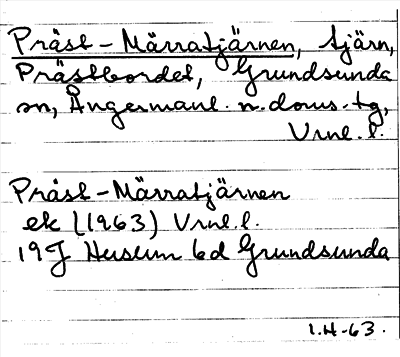 Präst-Märratjärnen, tjärn,
Prästbordet, Grundsunda
sn, Ångermanl. n. doms. tg,
Vrnl. l.
Präst-Märratjärnen
ek (1963) Vrnl. l.
19J Husum 6d Grundsunda
I.H-63.